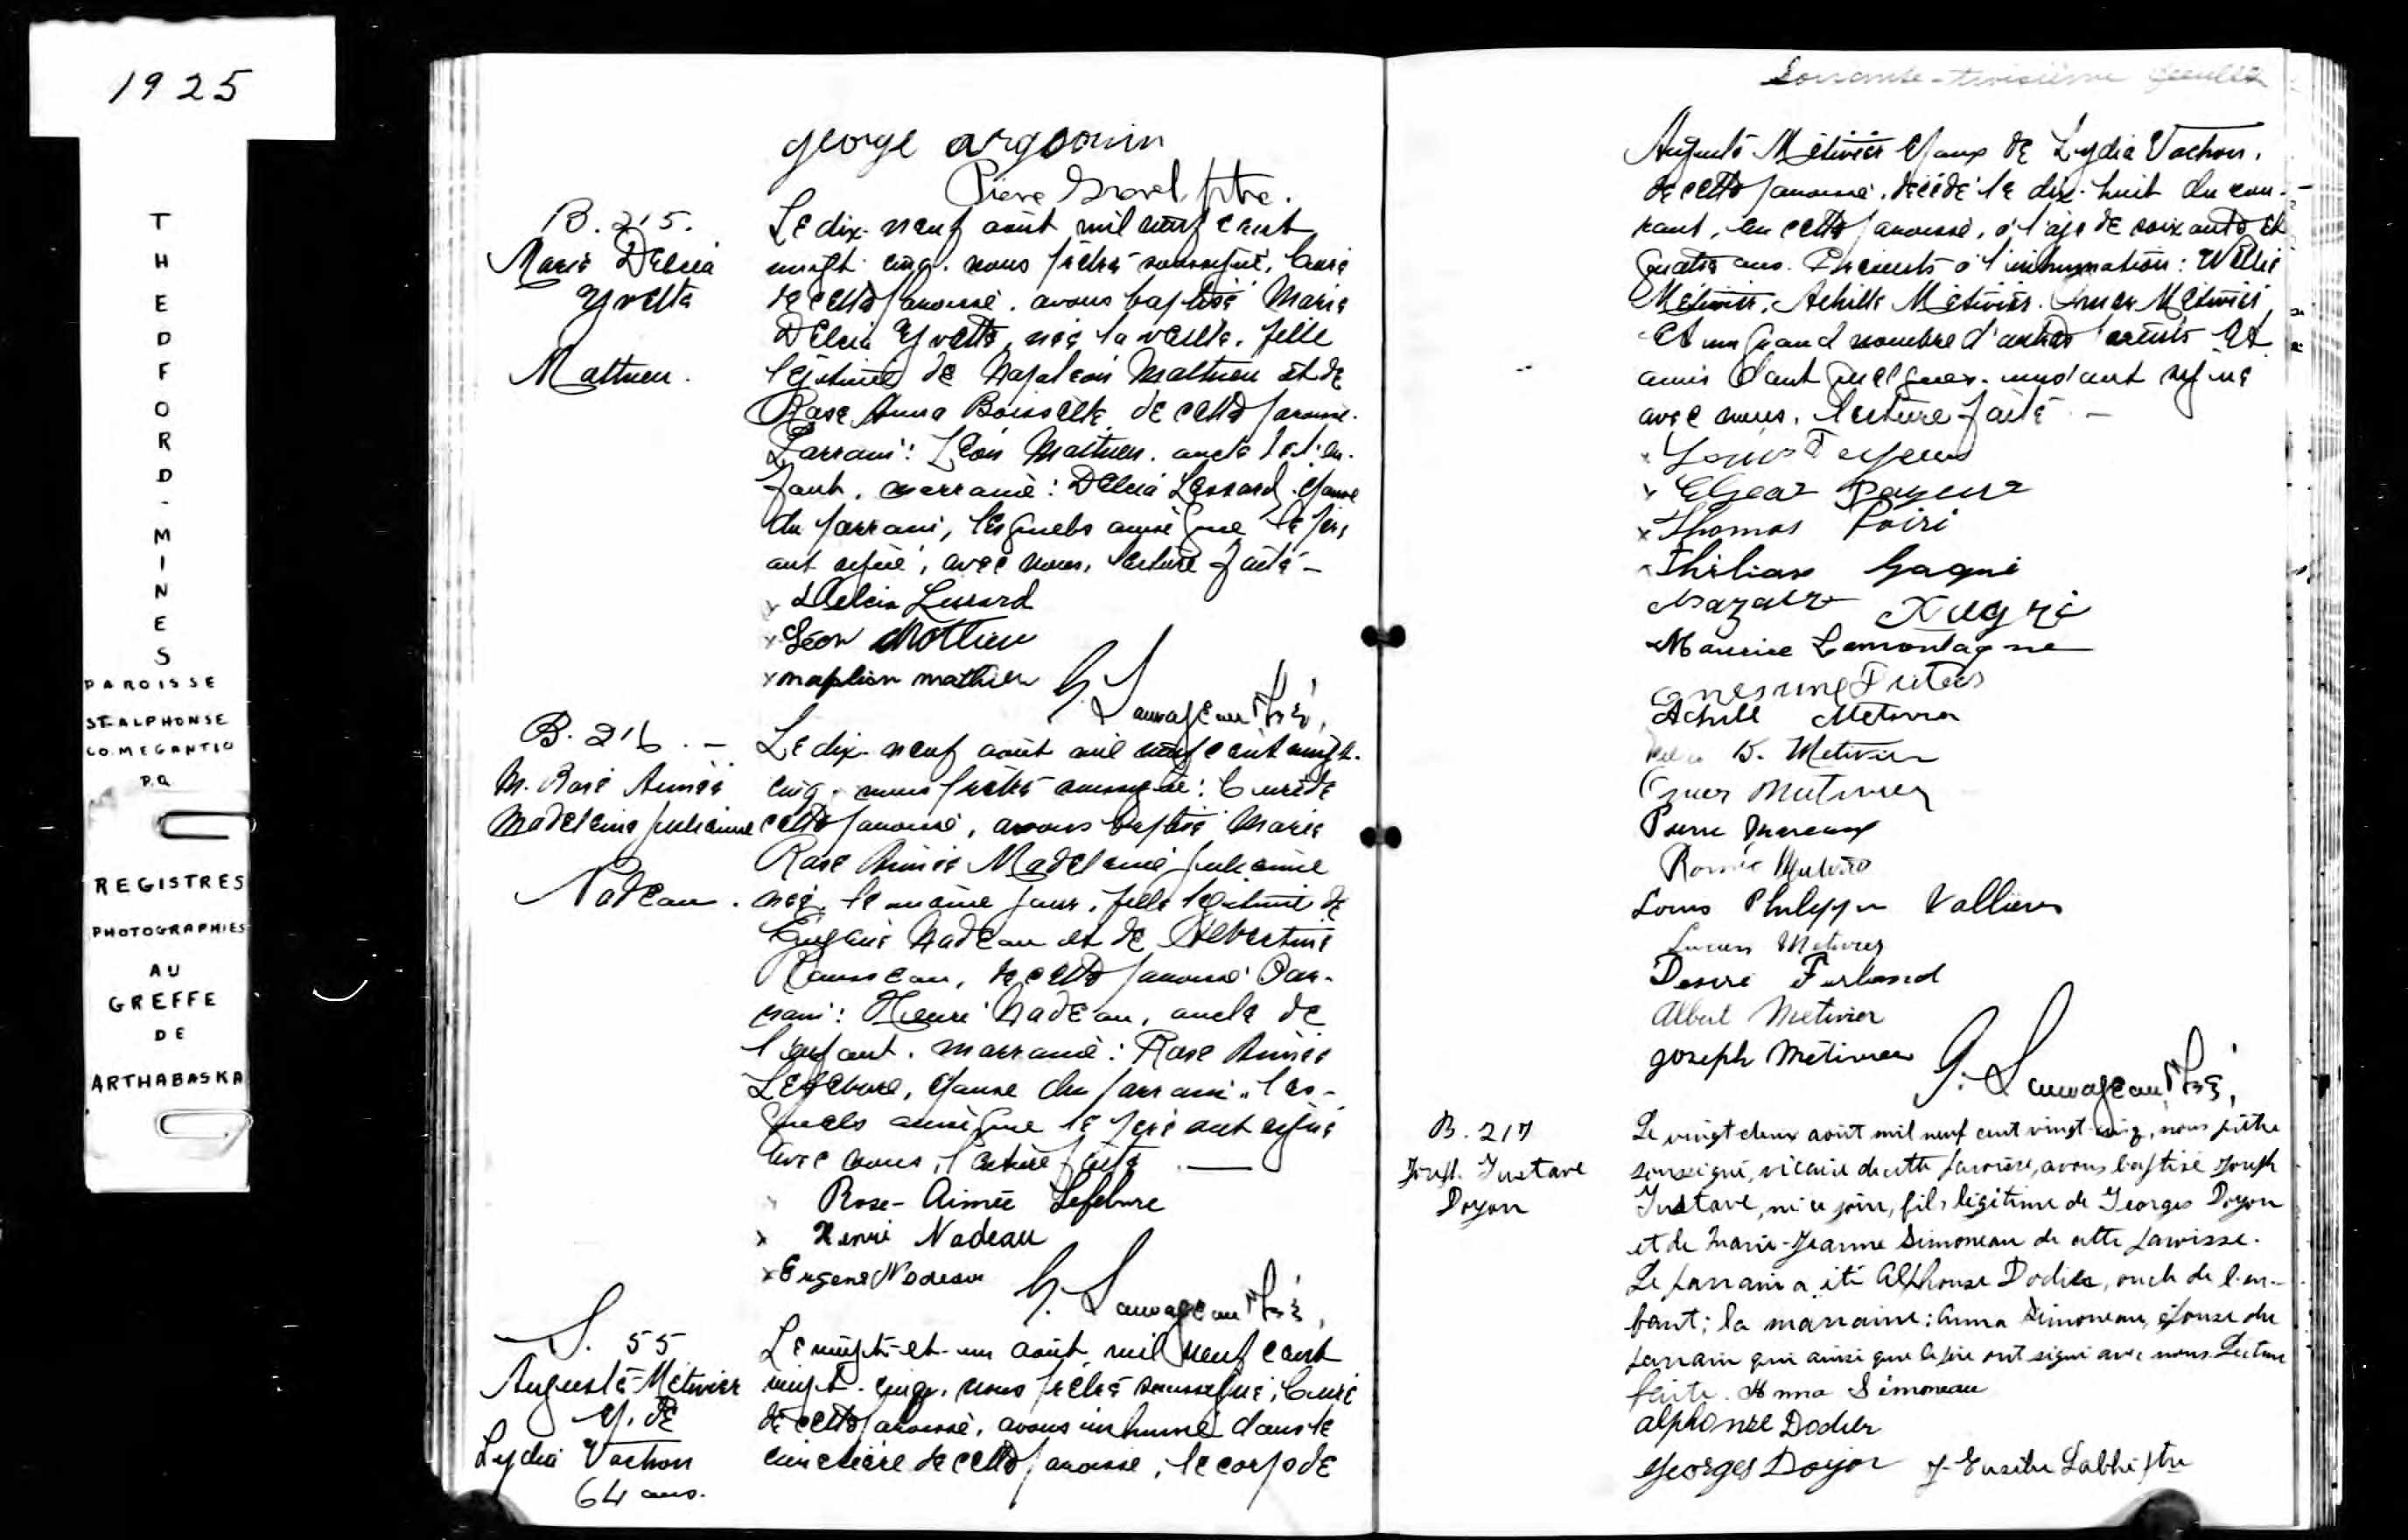 1925
THEDFORD-MINES
PAROISSE
ST-ALPHONSE
CO. MEGANTIC
P.Q.
REGISTRES
PHOTOGRAPHIES
AU
GREFFE
DE
ARTHABASKA
george
Pierre Gravel ptre.
B. 215.
Marie Delcia
Yvette
Mathieu.
Le dix-neuf août mil neuf cent
vingt-cinq, nous prêtre soussigné, Curé
de cette paroisse, avons baptisé Marie
Delcia Yvette, née la veille, fille
légitime de Napoléon Mathieu et de
Rose Anna Boisselle de cette paroisse.
Parrain: Léon Mathieu, oncle de l'en-
fant, marraine: Delcia Lessard, épouse
du parrain, lesquels ainsi que le père
ont signé, avec nous, lecture faite -
x Delcia Lessard
x Léon Mathieu
x napléon mathieu G. Sauvageau Ptre,
B. 216. -
M. Rose Aimée
Madeleine Julienne
Nadeau.
Le dix-neuf août mil neuf cent vingt-
cinq, nous prêtre soussigné: Curé de
cette paroisse, avons baptisé Marie
Rose Aimée Madeleine Julienne
née le même jour, fille légitime de
Eugène Nadeau et de Albertine
Rousseau, de cette paroisse Par-
rain: Henri Nadeau, oncle de
l'enfant, marraine: Rose Aimée
Lefebvre, épouse du parrain, les-
quels ainsi que le père ont signé
avec nous, lecture faite. —
Rose-Aimée Lefebvre
x Henri Nadeau
x Eugene Nadeau G. Sauvageau Ptre,
S. 55
Auguste Métivier
Ep. de
Lydia Vachon
64 ans.
Le vingt-et-un août mil neuf cent
vingt-cinq, nous prêtre soussigné, Curé
de cette paroisse, avons inhumé dans le
cimetière de cette paroisse, le corps de
Soixante-troisième feuillet
Auguste Métivier époux de Lydia Vachon,
de cette paroisse, décédé le dix-huit du cou-
rant, en cette paroisse, à l'âge de soixante et
quatre ans. Présents à l'inhumation: Willie
Métivier, Achille Métivier, Omer Métivier,
et un grand nombre d'autres parents et
amis dont quelques-uns ont signé
avec nous, lecture faite. -
x Louis Payeur
x Elzear Payeur
x Thomas Poiri
Gagné
Maurice Lamontagne
Achille Metivier
B. Metivier
Omer Metivier
Pierre
Roméo
Louis Philippe Vallières
Lucien Metivier
Desire Furland
Albert Metivier
Joseph Métivier G. Sauvageau, Ptre,
B. 217
Josph. Gustave
Doyon
Le vingt deux août mil neuf cent vingt-cinq, nous prêtre
soussigné, vicaire de cette paroisse, avons baptisé Joseph
Gustave, né ce jour, fils légitime de Georges Doyon
et de Marie-Jeanne Simoneau de cette paroisse.
Le parrain a été Alphonse Dodier, oncle de l'en-
fant; la marraine: Anna Simoneau, épouse du
parrain qui ainsi que le père ont signé avec nous. Lecture
faite. Anna Simoneau
alphonse Dodier
Georges Doyon J-Eusèbe Labbé ptre